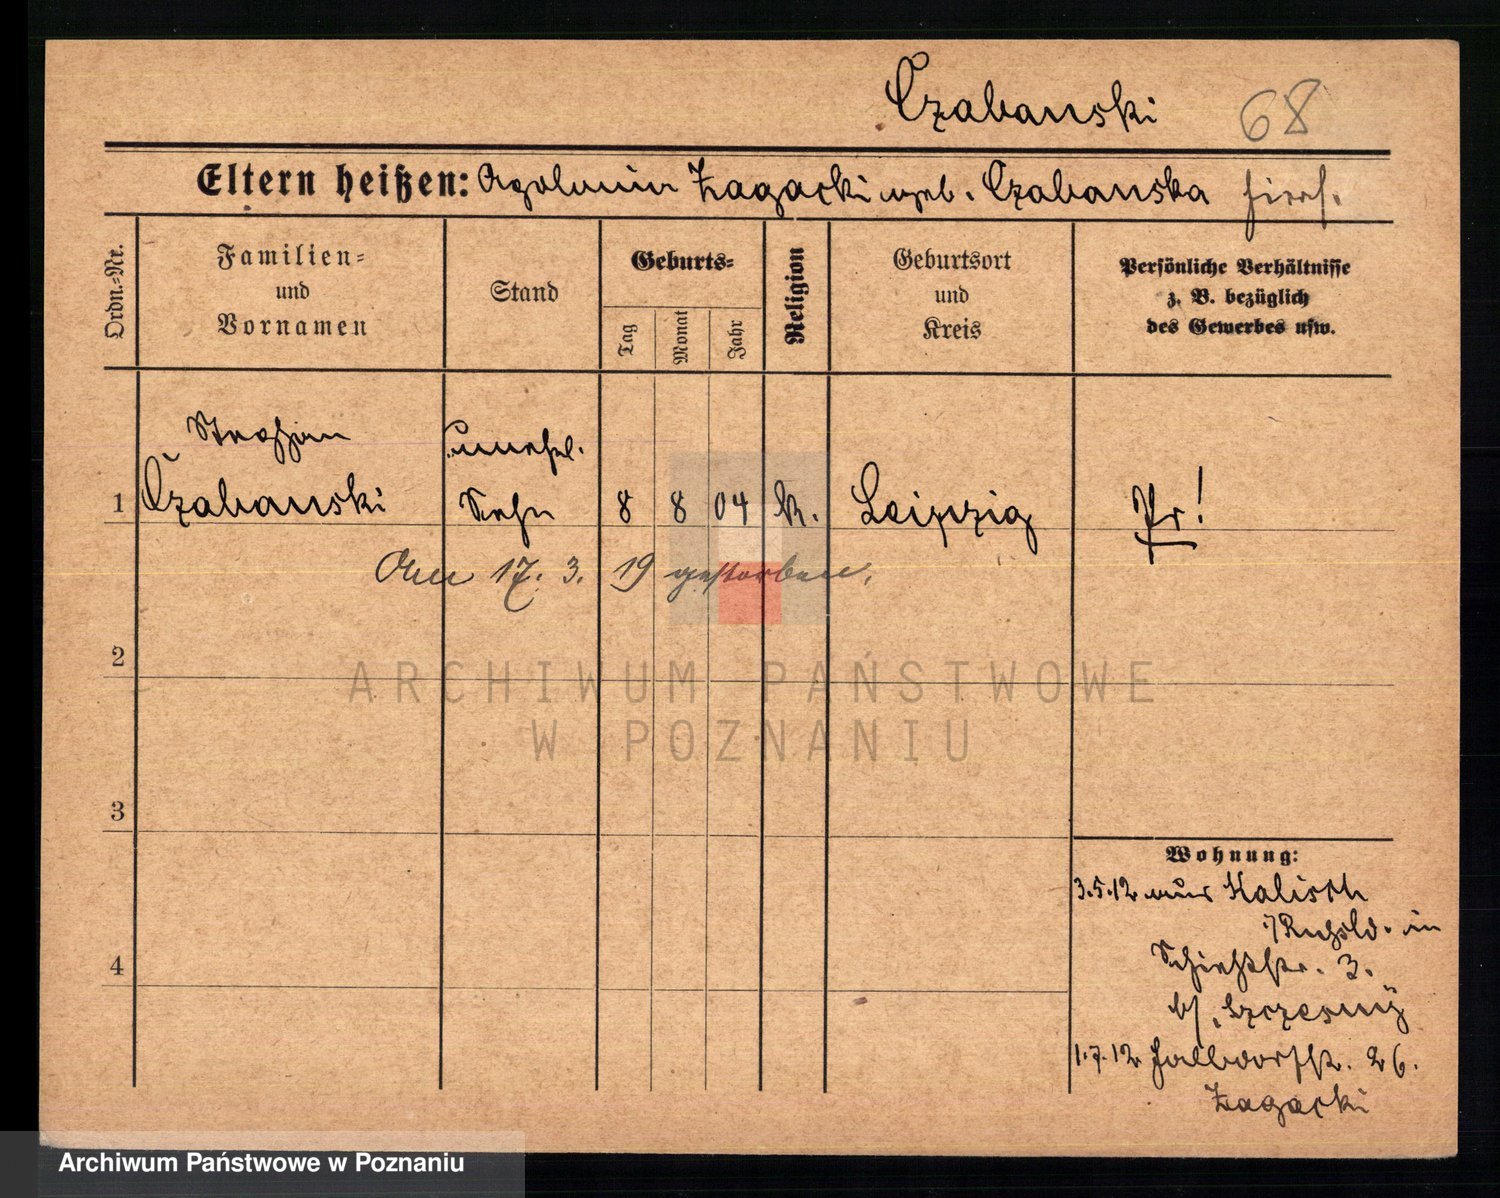 Czabanski 68
Eltern heißen: Apolonia Zagacki geb. Czabanska hier.
Ordn.-Nr.
Familien-
und
Vornamen
Stand
Geburts-
Tag
Monat
Jahr
Religion
Geburtsort
und
Kreis
Persönliche Verhältnisse
z. B. bezüglich
des Gewerbes usw.
Stephan unehel.
1 Czabanski Sohn 8 8 04 k. Leipzig Pr!
Am 17. 3. 19 gestorben.
2
ARCHIWUM PAŃSTWOWE
W POZNANIU
3
Wohnung:
3.5.12 aus Kalisch
i/Rußld. in
Schießstr. 3.
b/ Szczesny
4
1.7.12 Halldorfstr. 26.
Zagacki
Archiwum Państwowe w Poznaniu